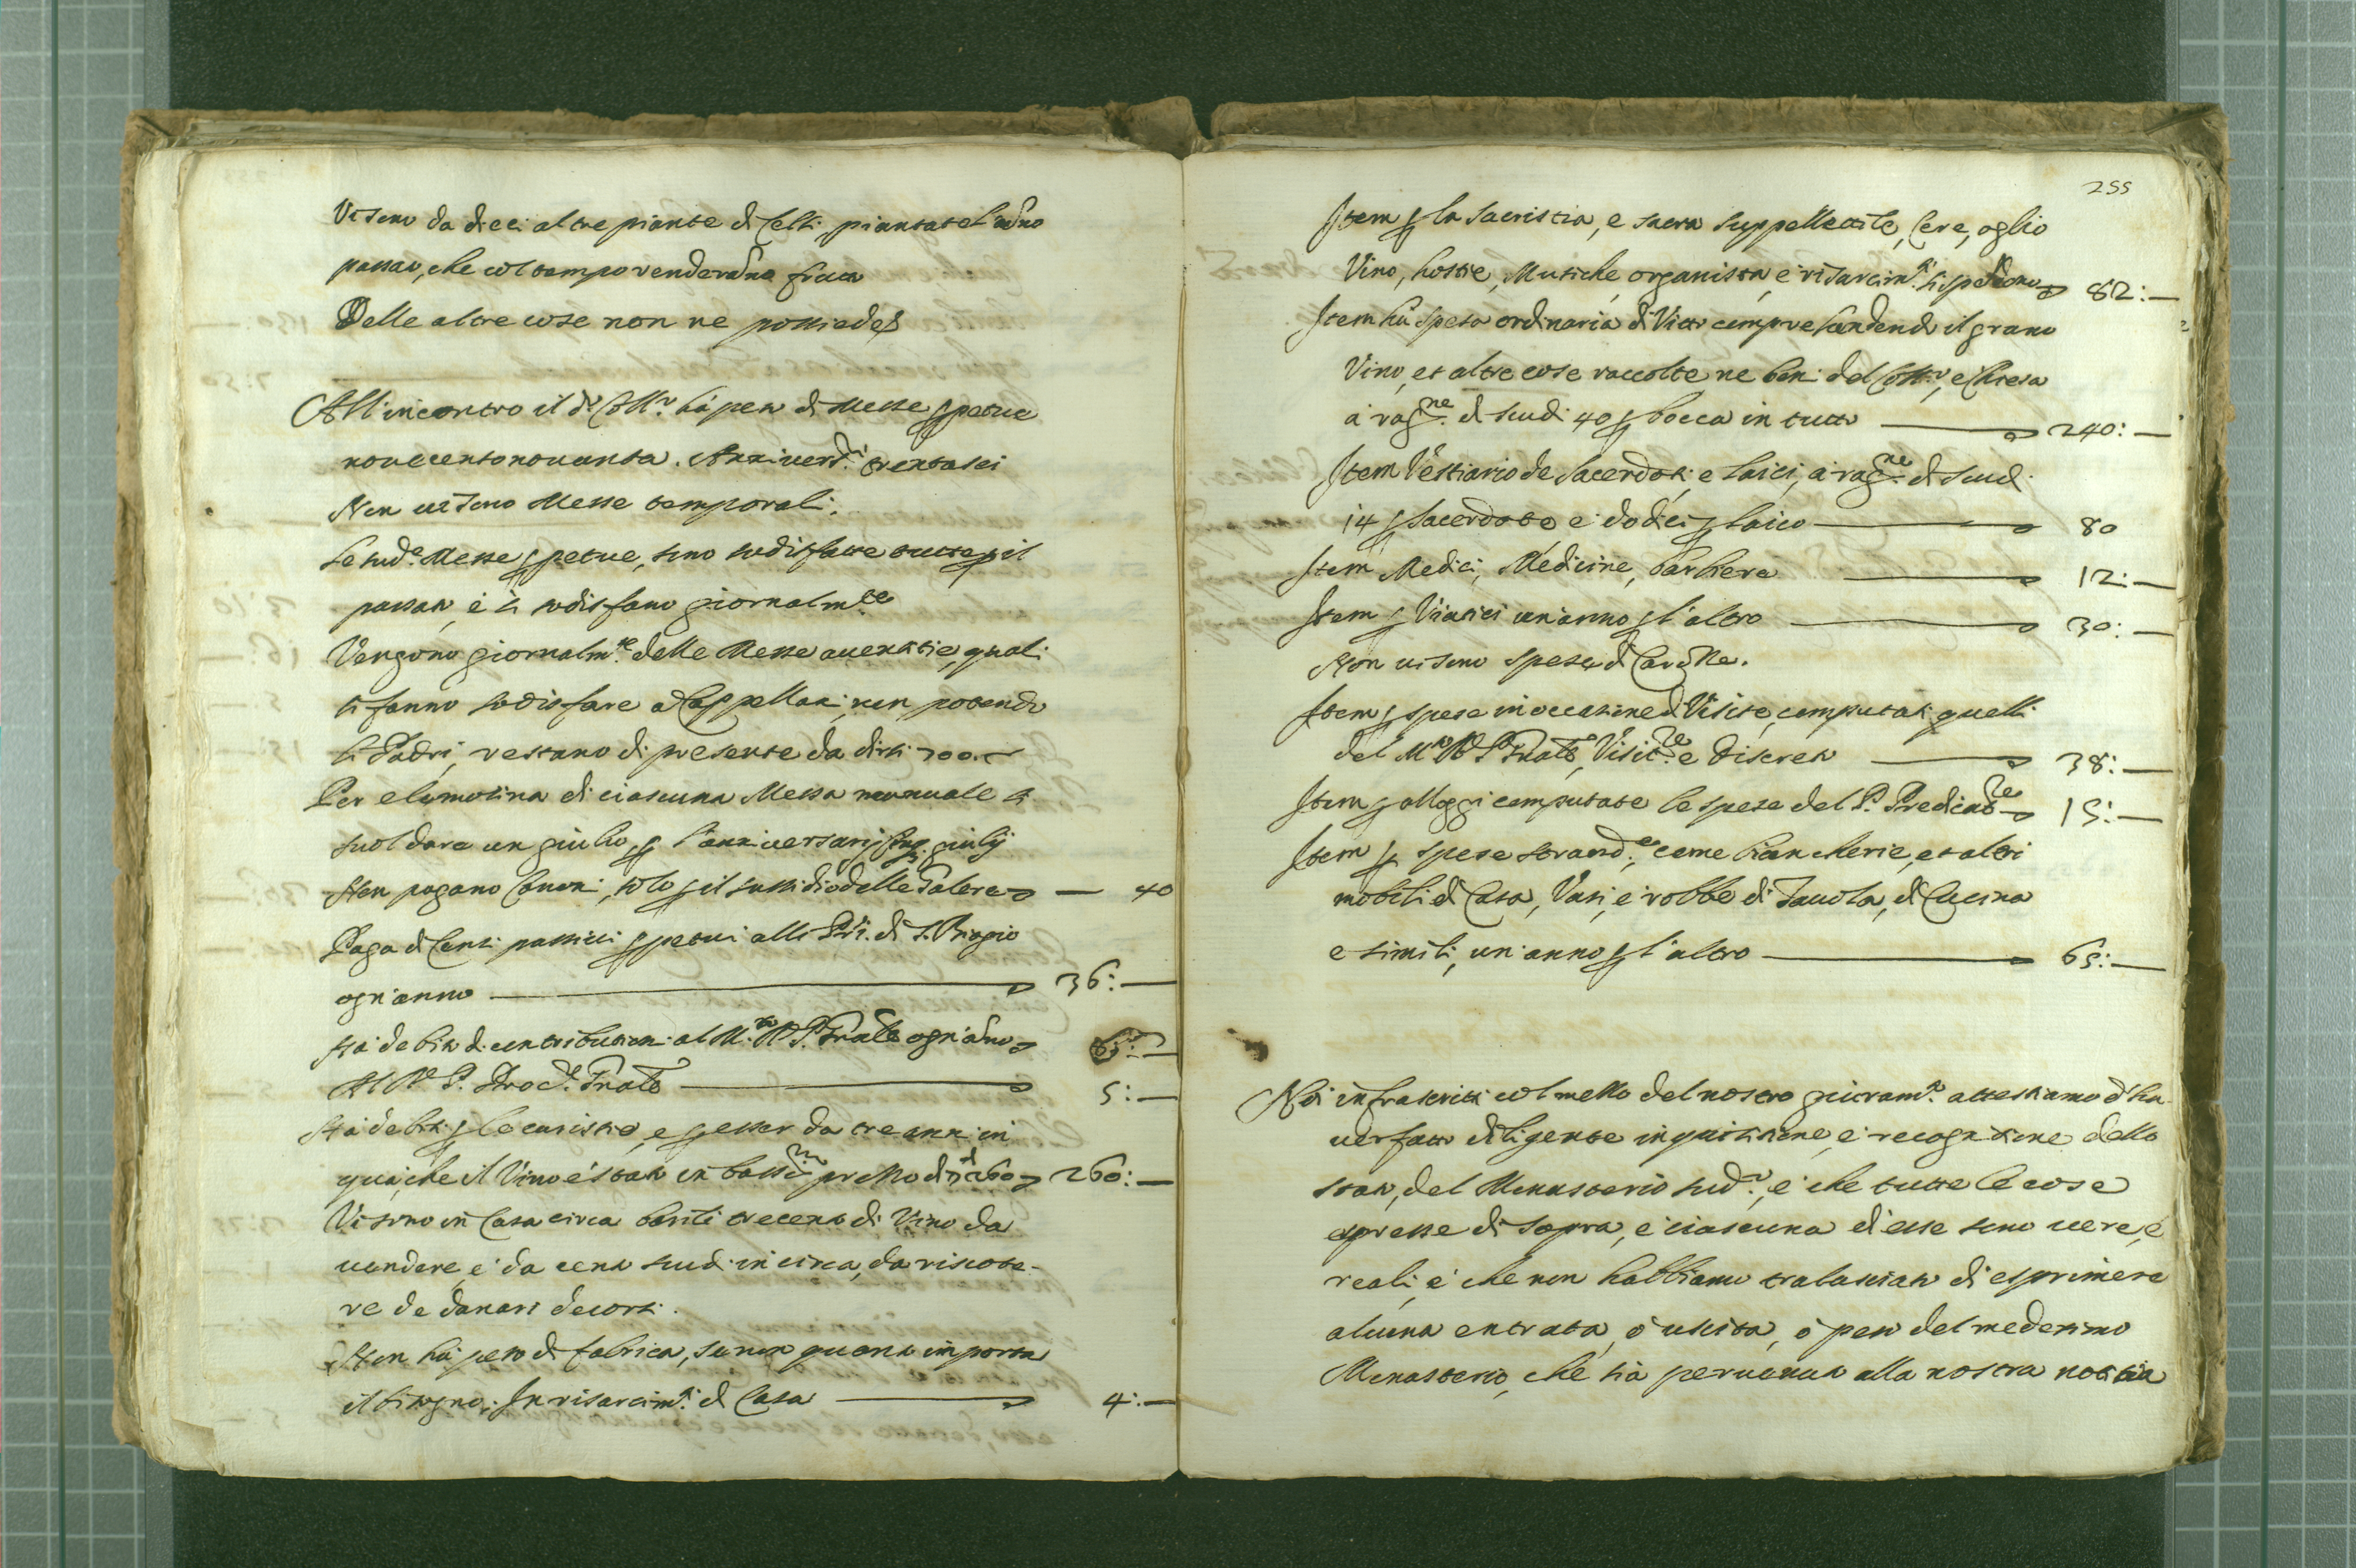 Vi sono da dieci altre piante di Celsi piantate l'anno
passato, che col tempo venderanno frutto
Delle altre cose non ne possiede
All'incontro il do Conto hà peso di Messe ꝑpetue
novecentonovanta. Anniversri trentasei
Non ui sono Messe temporali.
Le sude Messe ꝑpetue, sono sodisfatte tutte ꝑ il
passato, e si sodisfano giornalmte
Vengono giornalmte delle Messe auentitie, quali
si fanno sodisfare a Cappellani, non potendo
li Padri, restano di presente da dirsi 700
Per elemosina di ciascuna Messa manuale si
suol dare un giulio, ꝑ l'anniversarij giulij
Non pagano Canoni, solo ꝑ il sussidio delle Galere — 40
Paga di Censi passivi ꝑpetui alli Pri di S. Biagio
ogn'anno — 36:—
Hà debito di contributioni al M. R. P. Prole ogn'anno
Al R. P. Procre Prole — 5:—
Hà debiti ꝑ le caristie, e ꝑ esser da tre anni in
quà, che il Vino è stato in bassmo prezzo di 260 — 260:—
Vi sono in Casa circa barili trecento di Vino da
uendere, e da cento scudi in circa, da riscote-
re de danari decorsi.
Non hà peso di fabrica, se non quanto importa
il bisogno. In risarcimti di Casa — 4:—
255
Item ꝑ la sacristia, e sacra suppellettile, Cere, oglio
Vino, hostie, Musiche, organista, e risarcimti si spendono 82:—
Item hà spesa ordinaria di Vitto comprehendendo il grano
Vino, et altre cose raccolte ne beni del Conto, e Chiesa
à ragne di scudi 40 ꝑ bocca in tutto — 240:—
Item Vestiario de Sacerdoti, e laici, à ragne di scudi
14 ꝑ Sacerdote, e dodici ꝑ laico — 80
Item Medici, Medicine, barbiera — 12:—
Item ꝑ Viatici un'anno ꝑ l'altro — 30:—
Non ui sono spese di Caualle.
Item ꝑ spese in occasione di Visite, computati quelli
del M. R. P. Prole, Visitre e Discreto — 38:—
Item ꝑ alloggi computate le spese del P. Predicatre 15:—
Item ꝑ spese straordie, come biancherie, et altri
mobili di Casa, Vasi, e robbe di Tauola, di Cucina
e simili, un'anno ꝑ l'altro — 65:—
Noi infrascritti col mezzo del nostro giuramto attestiamo d'ha-
uer fatto diligente inquisitione, e recognitione dello
stato, del Monasterio sudo, e che tutte le cose
espresse di sopra, e ciascuna di esse sono uere, e
reali, e che non habbiamo tralasciato di esprimere
alcuna entrata, ò uscita, ò peso del medesimo
Monasterio, che sia peruenuta alla nostra notitia